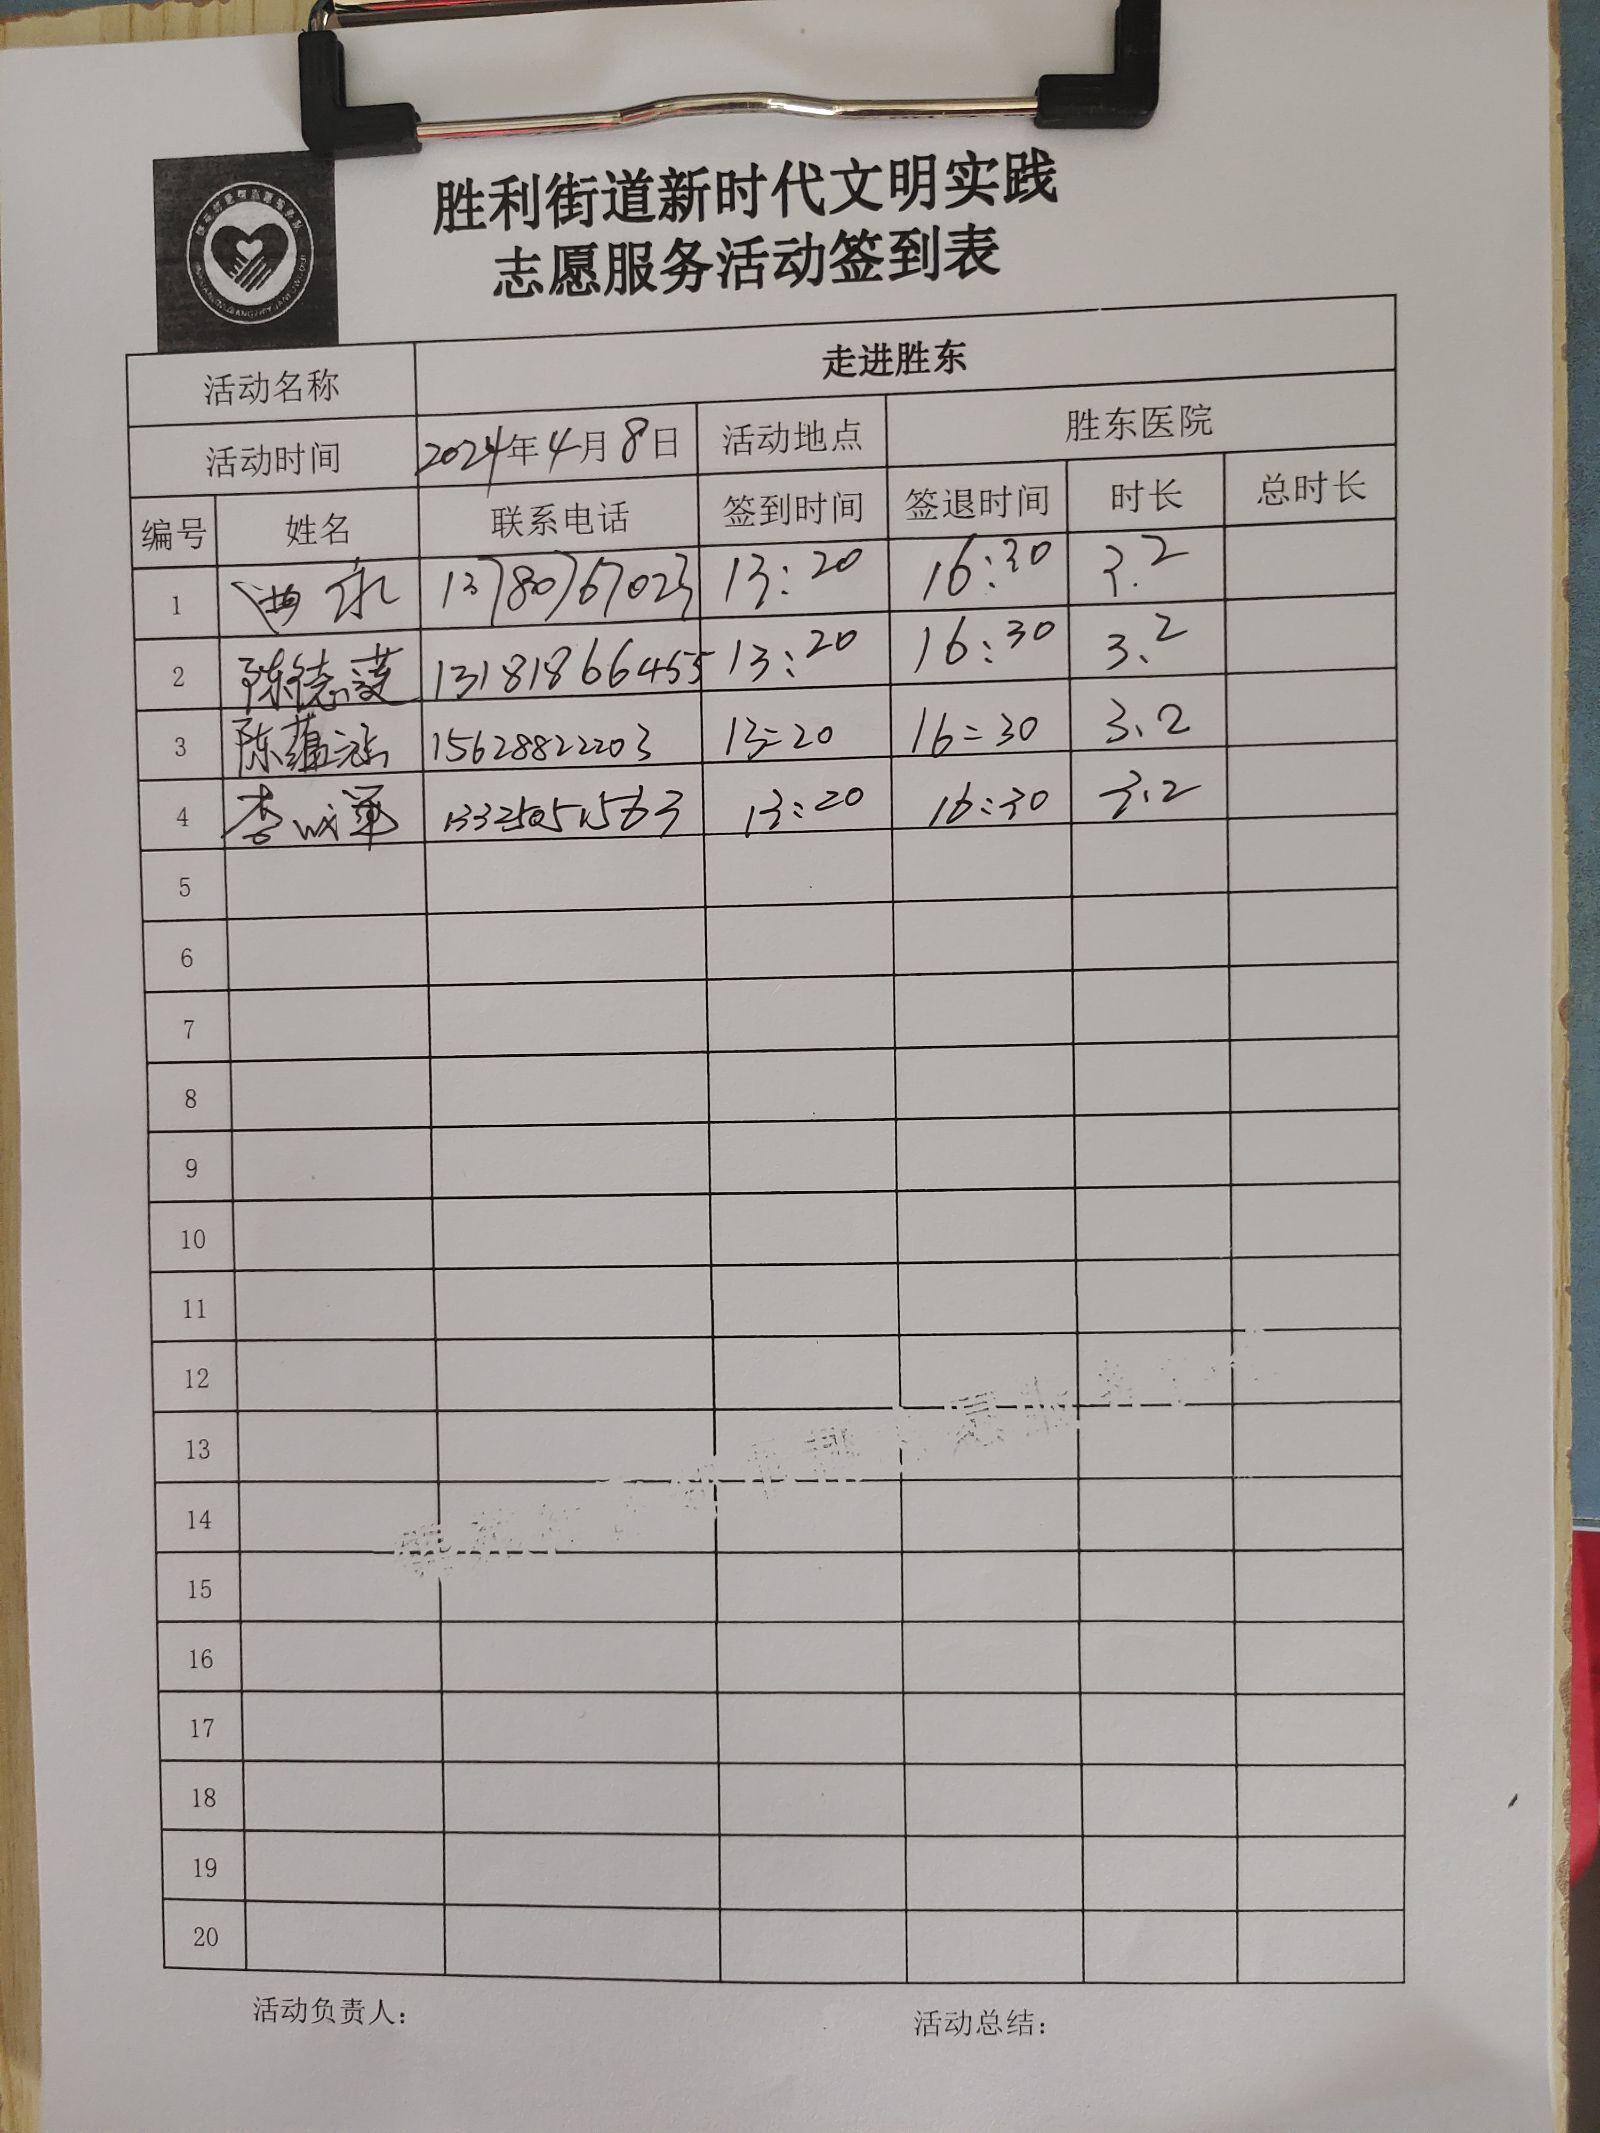 胜利街道新时代文明实践
志愿服务活动签到表
活动名称 走进胜东
活动时间 2024年4月8日 活动地点 胜东医院
编号 姓名 联系电话 签到时间 签退时间 时长 总时长
1 13780767023 13:20 16:30 3.2
2 陈德 13181866455 13:20 16:30 3.2
3 陈蕴 15628822203 13:20 16:30 3.2
4 李成军 13325051563 13:20 16:30 3.2
5
6
7
8
9
10
11
12
13
14
15
16
17
18
19
20
活动负责人: 活动总结: